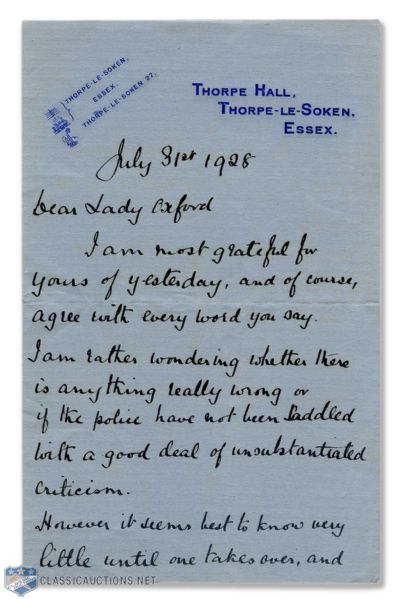 THORPE-LE-SOKEN,
ESSEX.
THORPE-LE-SOKEN 27.
THORPE HALL,
THORPE-LE-SOKEN,
ESSEX.
July 31st 1928
Dear Lady Oxford
I am most grateful for
yours of yesterday, and of course,
agree with every word you say.
I am rather wondering whether there
is anything really wrong or
if the police have not been saddled
with a good deal of unsubstantiated
criticism.
However it seems best to know very
little until one takes over, and
CLASSICAUCTIONS.NET